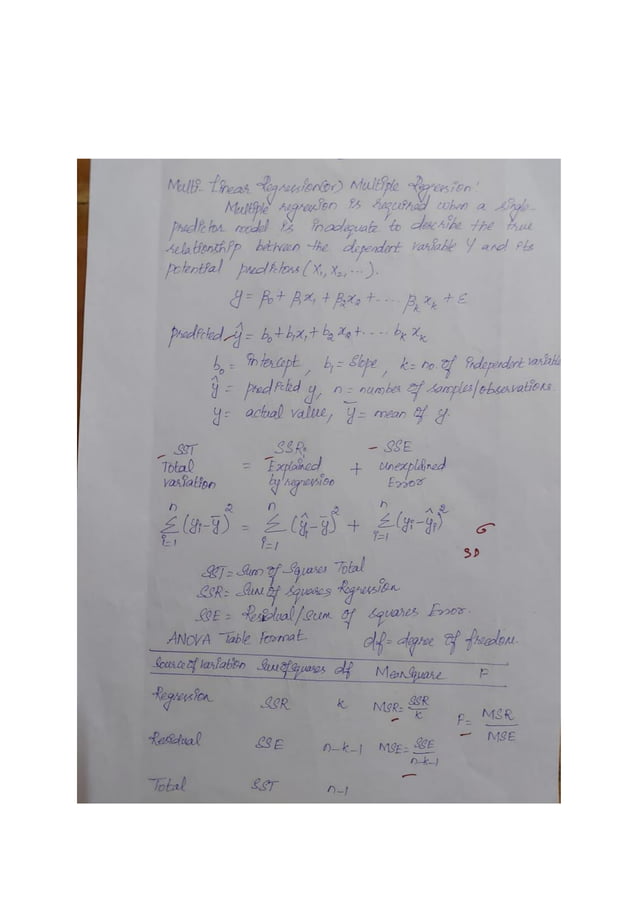 Multi-Linear Regression(or) Multiple Regression:
Multiple regression is required when a single-
predictor model is inadequate to describe the true
relationship between the dependent variable Y and its
potential predictors (X₁, X₂, ...).
y = β₀ + β₁x₁ + β₂x₂ + .... βₖxₖ + ε
predicted ŷ = b₀ + b₁x₁ + b₂x₂ + .... bₖxₖ
b₀ = intercept, b₁ = slope, k = no. of independent variable
ŷ = predicted y, n = number of samples/observations.
y = actual value, ȳ = mean of y.
SST SSR: SSE
Total = Explained + unexplained
variation by regression Error
∑ⁿᵢ₌₁ (yᵢ-ȳ)² = ∑ⁿᵢ₌₁ (ŷᵢ-ȳ)² + ∑ⁿᵢ₌₁ (yᵢ-ŷᵢ)² σ
SD
SST = Sum of Squares Total
SSR = Sum of squares Regression
SSE = Residual/Sum of squares Error.
ANOVA Table Format df = degree of freedom.
Source of variation Sum of squares df Mean Square F
Regression SSR k MSR = SSR/k F = MSR/MSE
Residual SSE n-k-1 MSE = SSE/n-k-1
Total SST n-1